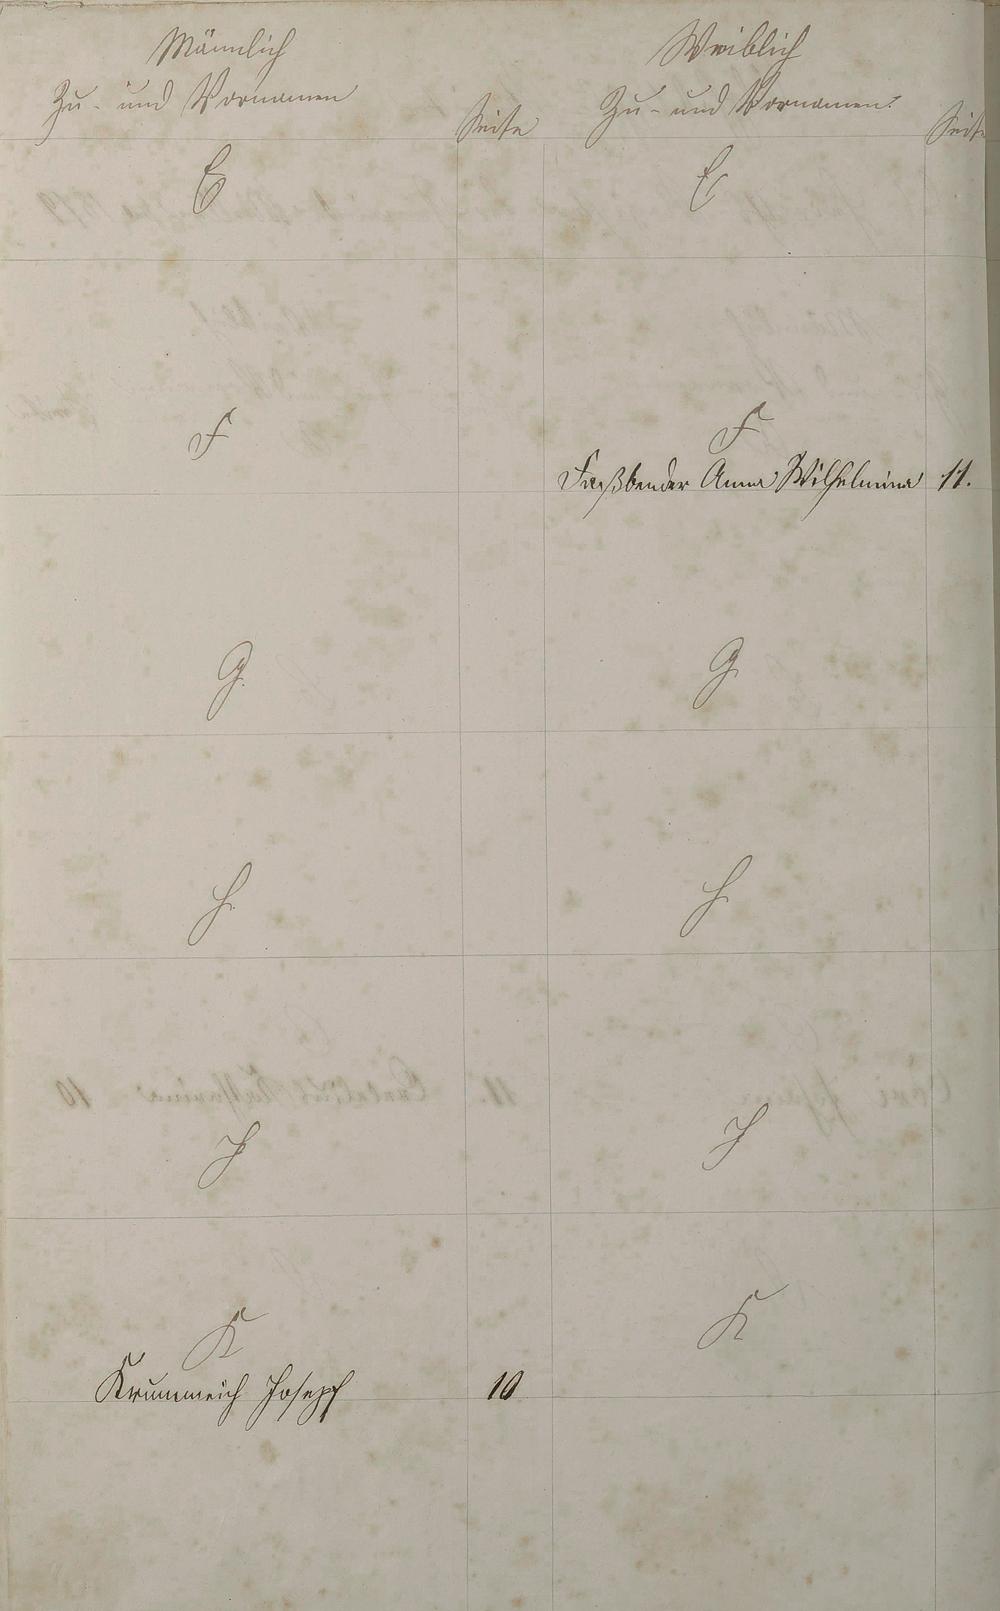 Männlich
Zu- und Vornamen
Seite
Weiblich
Zu- und Vornamen.
Seite
E
E
F
F
Faßbender Anna Wilhelmina 11.
G.
G.
H.
H.
J
J
K
K
Krummeich Joseph 10